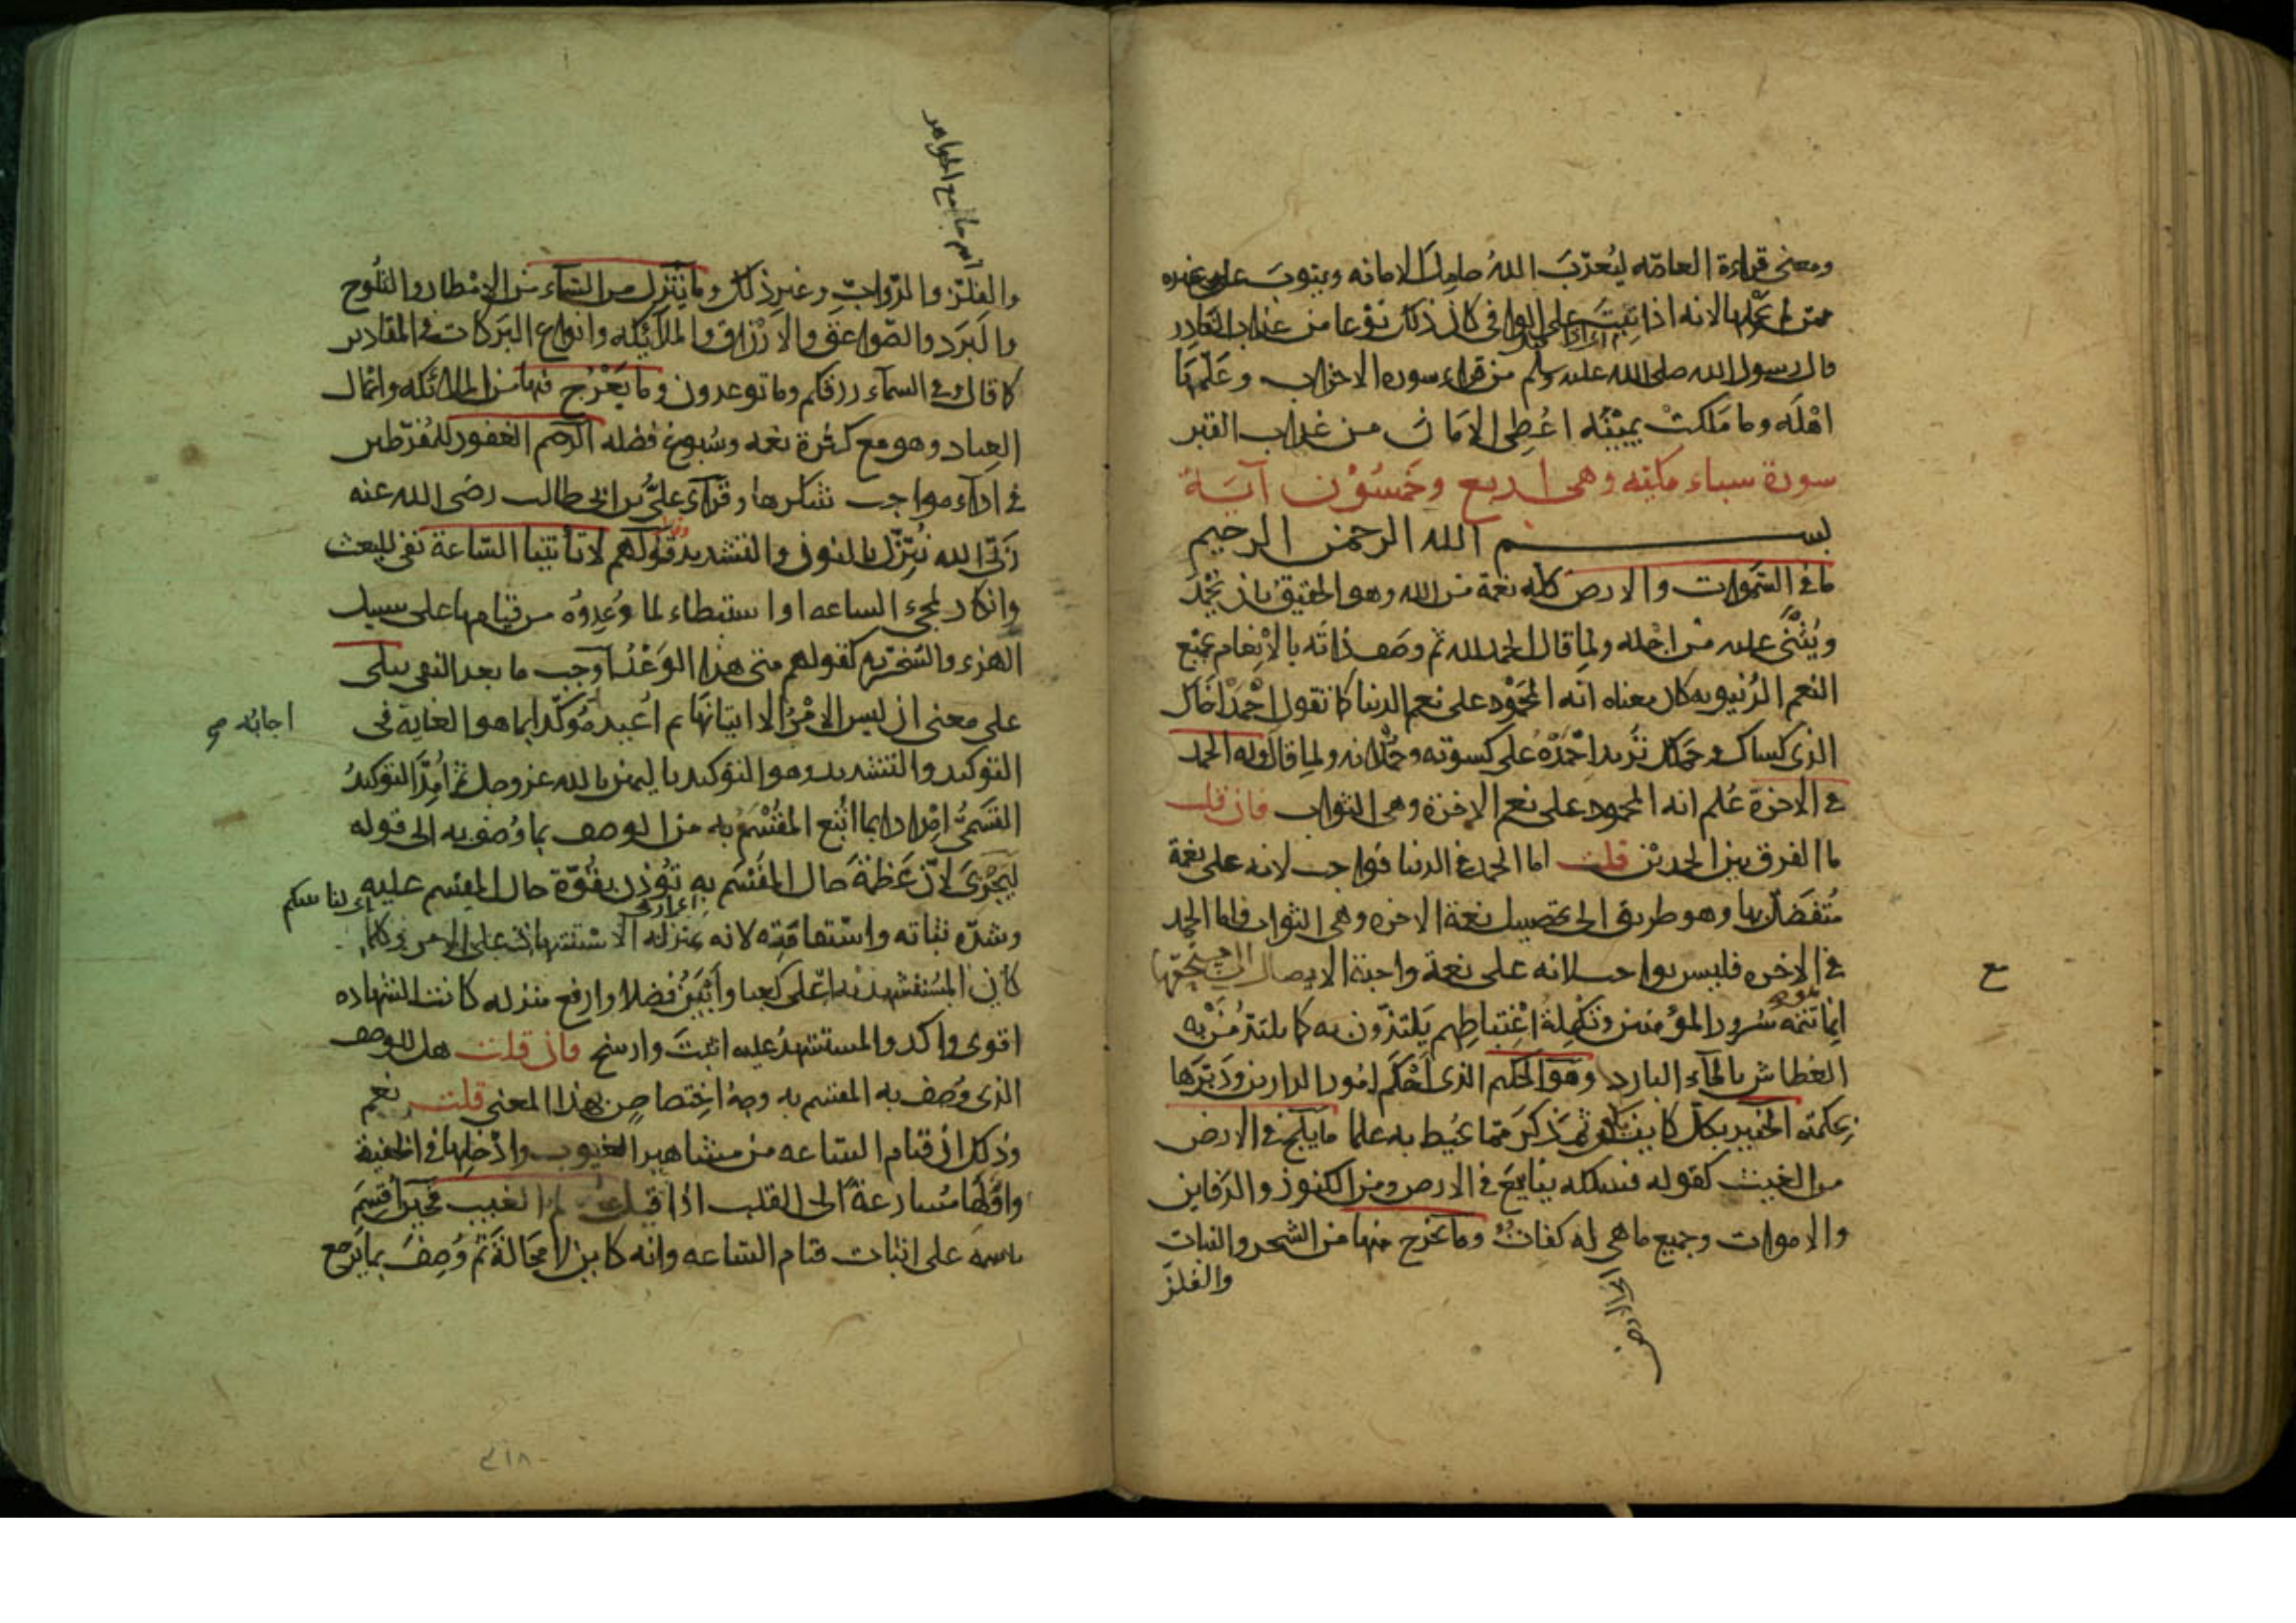 ومعنى قراءة العامّه ليُعذّبَ اللهُ حامِلَ الامانه ويتوبَ على غيره
ممّن لم يحملها لانه اذا تِيبَ على الوافى كان ذلك نوعا من عذاب الغادِر
قال رسول الله صلى الله عليه وسلم من قراء سوره الاحزاب وعَلّمها
اهْلَه وما مَلكتْ يمِيْنُه اعُطِى الامَان من عذاب القبر
سورة سباء مكيّه وهى اربع وخمسُوْن آيَة
بسم الله الرحمن الرحيم
ما فى السَّموات والارض كله نعمة من الله وهو الحقيق بان يُحْمَدَ
ويُثْنَى عليه من اجْله ولما قال الحمد لله ثم وصَف ذاتَه بالاِنْعام بجميع
النعم الدُنيويه كان معناه انه المحمُوْد على نعم الدنيا كما تقول احْمَدْ اخَاك
الذى كساك وحمَلك تُريد احْمَدْهُ على كسوته وحُمْلانه ولما قال وله الحمد
فى الاخرة عُلم انه المحمود على نعم الاخرة وهى الثواب فان قلت
ما الفرق بين الحمديْن قلت اما الحمد فى الدنيا فواجب لانه على نعمة
مُتفضَّل بها وهو طريق الى تحصيل نعمة الاخره وهى الثواب واما الحمد
فى الاخره فليس بواجب لانه على نعمة واجبة الايصال الى مستحقها
انما تتمه سُرور المؤمنين وتكْمِلة اغْتِباطِهم يَلتذّون به كما يلتذ مَنْ به
العُطاش بالماء البارد وهو الحكيم الذى اَحْكَمَ امُور الدارين ودَبّرَها
بحكمته الخبير بكل كاين يكون ثم ذكَرَ ممّا يحُيط به علما ما يَلِج فى الارض
من الغيث كقوله فسلكه ينابيعَ فى الارض ومن الكنوز والدَفاين
والاموات وجميع ما هى له كفاتٌ وما يخرج منها من الشجر والنبات
والفلزّ
والفلزّ والدّوابّ وغيرِ ذلك وما يَنْزِل من السّماء من الامْطار والثلُوج
والبَرَد والصّواعق والارْزاق والملآئكه وانواع البَركات والمقادير
كما قال وفى السمآء رزقكم وما توعدون وما يَعْرُج فيها من الملائكه واعمال
العِباد وهو مع كثرة نعمه وسُبوغ فضله الرحيم الغفور للمُفرّطين
فى ادآء مواجب شكرها وقرآء علىُّ بن ابى طالب رضى الله عنه
نُنَزّل بالنون والتشديد قولهم لا تأتينا السّاعة نفى للبعث
وانكار لمجىء الساعه او استبطاء لما وُعِدوُه من قيامها على سبيل
الهزء والسُّخريه كقولهم متى هذا الوَعْدُ اَوجب ما بعد النفى ببلى
على معنى ان ليس الامْرُ الا اتيانَها ثم اعُيد مُوكّدا بما هو الغاية فى
التوكيد والتشديد وهو التوكيد باليمين بالله عز وجل ثم اُمِدَّ التوكيدُ
القسَمىُّ اِمْدادا بما اتُبع المقْسَمُ به من الوصف بما وُصف به الى قوله
ليَجْزِىَ لانّ عَظمَةَ حال المقْسَم به تؤذن بقُوّة حال المقسم عليه
وشدّه ثباته واسْتقامَتِه لانه بمنزله الاستشهاد على الامر وكلّما
كان المسُتشهد به اعلى كعبا وابْيَن فضلا وارفع منزله كانت الشهاده
اقوى واكد والمستشهدُ عليه اثبَتَ وارسخ فان قلت هل للوصف
الذى وُصف به المقسم به وجهُ اخِتصاصٍ بهذا المعنى قلت نعم
وذلك ان قيام الساعه من مشاهير الغيوب وادْخلِها فى الخفية
واوّلها مُسارعةً الى القلب اذا قيل عالم الغيب فحين اُقْسِمَ
باسمه على اثبات قيام السّاعه وانه كاين لا مَحالَةَ ثم وُصِفَ بما يَرجع
اجابه صح